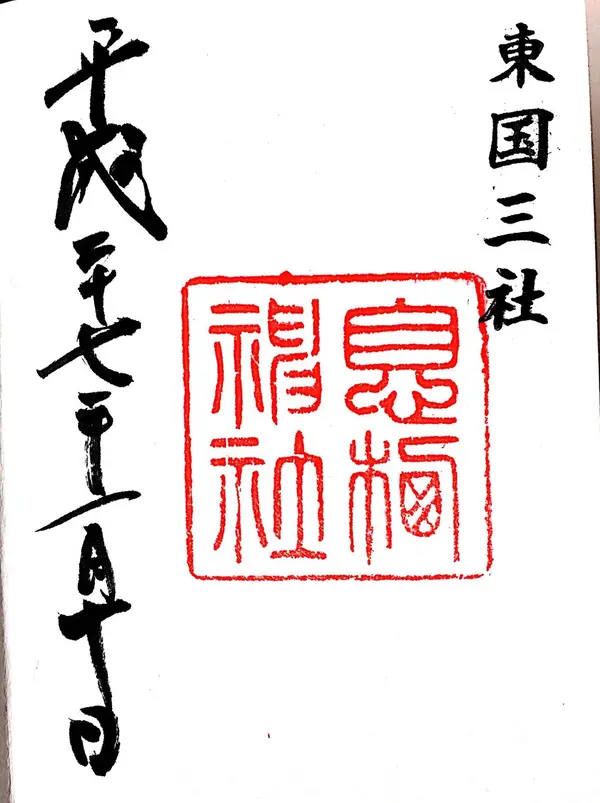 東国三社
息栖
神社
平成二十七年一月十日